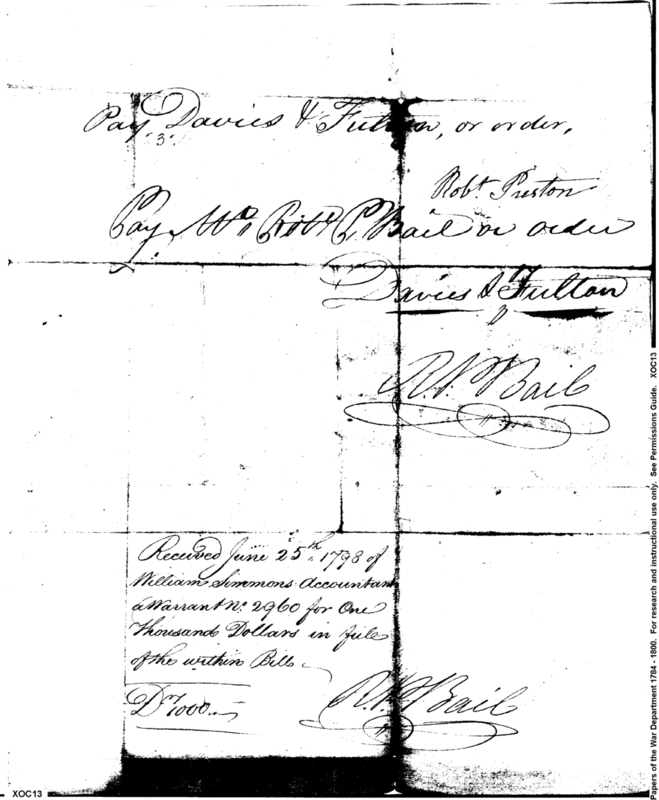 Pay Davies & Fulton, or order,
Robt. Preston
Pay Mr. Robt P. Bail or order
Davies & Fulton
R. P. Bail
Received June 25th. 1798 of
William Simmons Accountant
a Warrant No. 2960 for One
Thousand Dollars in full
of the within Bill
Ds. 1000.
R. P. Bail
XOC13
Papers of the War Department 1784 - 1800. For research and instructional use only. See Permissions Guide. XOC13